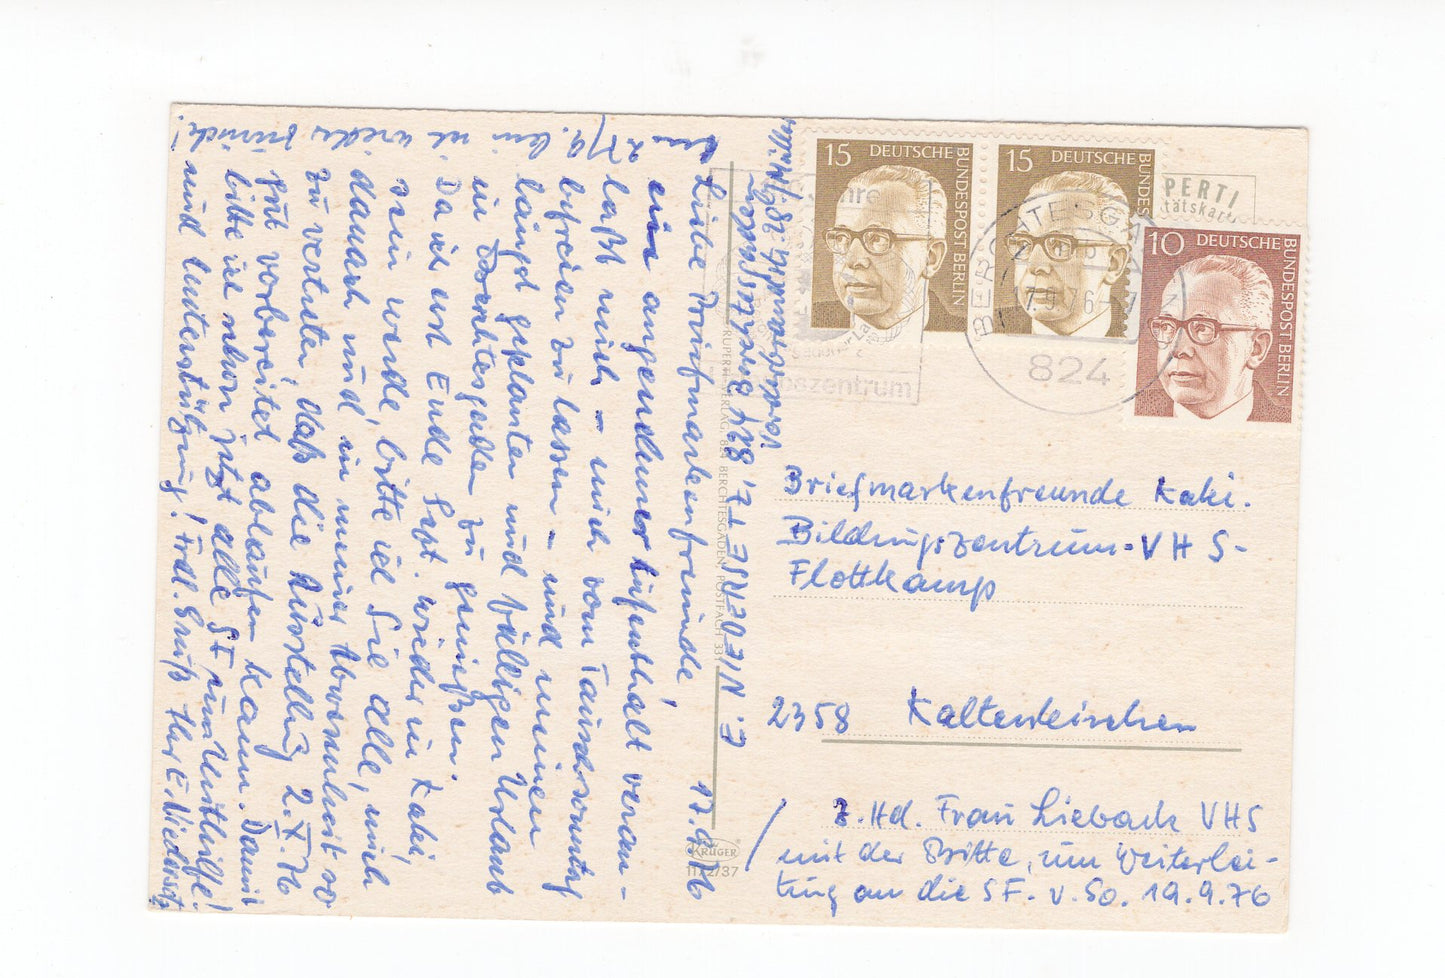 15 DEUTSCHE BUNDESPOST BERLIN
15 DEUTSCHE BUNDESPOST
10 DEUTSCHE BUNDESPOST BERLIN
PERTI
tätskarte
BERCHTESGADEN
17.9.76-
824
zentrum
Briefmarkenfreunde Kaki.
Bildungszentrum-VHS-
Flottkamp
2358 Kaltenkirchen
z. Hd. Frau Lieback VHS
mit der Bitte, um Weiterlei-
tung an die SF. v. So. 19.9.76
KRÜGER
1172/37
KRÜPERTI-VERLAG, 824 BERCHTESGADEN, POSTFACH 331
17.9.76
Liebe Briefmarkenfreunde!
Ein angenehmer Aufenthalt veran-
laßt mich – mich vom Tauschsonntag
befreien zu lassen – und meinen
längst geplanten und fälligen Urlaub
in Berchtesgaden zu genießen.
Da ich erst Ende Sept. wieder in Kaki,
sein werde, bitte ich Sie alle, mich
danach und in meiner Abwesenheit so
zu vertreten, daß die Ausstellung 2.X.76
gut vorbereitet ablaufen kann. Damit
bitte ich schon jetzt alle SF um Mithilfe!
und Unterstützung! Frdl. Gruß Ihr E. Niedoretz
27/9. bin ich wieder zurück!